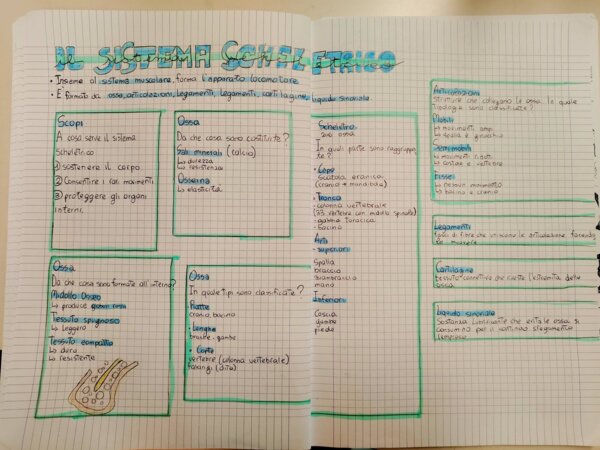 IL SISTEMA SCHELETRICO
• Insieme al sistema muscolare, forma l'apparato locomotore
• E' formato da ossa, articolazioni, legamenti, legamenti, cartilagine, liquido sinoviale.
Scopi
A cosa serve il sistema
scheletrico
① sostenere il corpo
② Consentire i movimenti
③ proteggere gli organi
interni.
Ossa
Da che cosa sono costituite?
Sali minerali (calcio)
↳ durezza
↳ resistenza
Osseina
↳ elasticità
Ossa
Da che cosa sono formate all'interno?
Midollo Osseo
↳ produce globuli rossi
Tessuto spugnoso
↳ leggero
Tessuto compatto
↳ duro
↳ resistente
Ossa
In quale tipi sono classificate?
• Piatte
cranio, bacino
• Lunghe
braccia - gambe
• Corte
vertebre (colonna vertebrale)
falangi (dita)
Scheletro
ossa
In quali parte sono raggruppa
te?
• Capo
scatola cranica
(cranio + mandibola)
• Tronco
- colonna vertebrale
(33 vertebre con midollo spinale)
- gabbia toracica
- bacino
Arti
- superiori
Spalla
braccio
avambraccio
mano
Inferiori
Coscia
gamba
piede
Articolazioni
Strutture che collegano le ossa. In quale
tipologia sono classificate?
Mobili
↳ movimenti ampi
↳ spalla e ginocchio
Semimobili
↳ movimenti ridotti
↳ costole e vertebre
Fisse
↳ nessun movimento
↳ bacino e cranio
Legamenti
fasci di fibre che uniscono le articolazioni facendo
le muovere
Cartilagine
tessuto connettivo che riveste l'estremità delle
ossa
Liquido sinoviale
Sostanza lubrificante che evita le ossa si
consumino per il continuo sfregamento